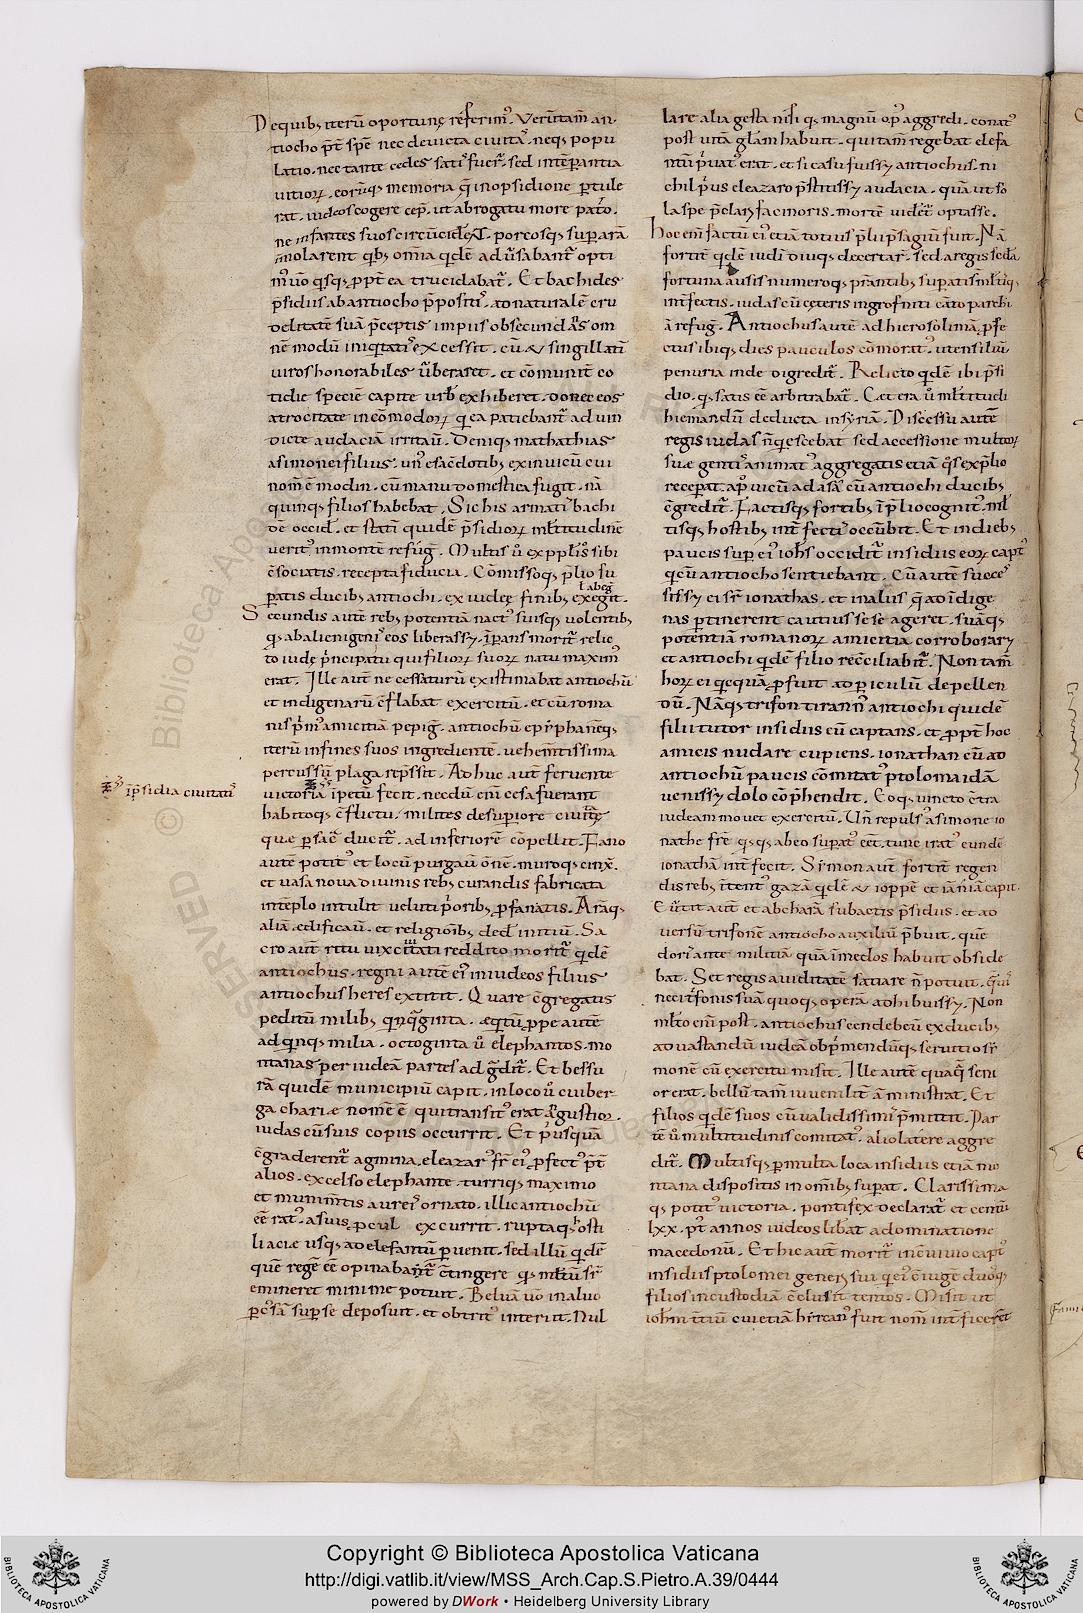 De quibꝫ iterū oportunę referimꝰ. Verūtam̄ an-
tiocho p̄t spē nec devicta civitaſ. neqꝫ popu
latio. nec tante cedes satiſ fuer̄. sed intēperantia
vitioꝝ. eorūqꝫ memoria q̄ in opsidione ptule
rat. iudeos cogere cep̄. ut abrogatu more patͦ.
ne infantes suos circūciderēt. porcosqꝫ sup̄ arā
immolarent. qͥbꝫ om̄ia qͥdē adūsabant̄ opti
mꝰ v̄o qͥsqꝫ ꝓpt̄ ea trucidabat̄. Et bachides
p̄sidiis ab antiocho p̄positꝰ. ad naturalē cru
delitatē suā p̄ceptis impiis obsecundās om
nē modū iniqͥtatiſ excessit. cū & singillatī
viros honorabiles v̄beraret. et cōmunit̄ co
tidie speciē capte urbꝰ exhiberet. donec eos
atrocitate incōmodoꝝ q̄ ea patiebant̄ ad vin
dicte audaciā irritaū. Deniqꝫ mathathias
asimonei filius. unꝰ e sac̄dotibꝫ ex in vicū cui
nom̄ ē modin. cū manu domestica fugit. nā
quinqꝫ filios habebat. Sic his armatiſ bachi
dē occid̄. et statī quidē p̄sidioꝝ mltitudinē
veritꝰ in montē refūḡ. Multis v̄ ex pplīs sibi
c̄sociatis. recepta fiducia. Cōmissoqꝫ p̄lio su
patis ducibꝫ antiochi. ex iudeę finibꝫ exegit.
ł abeḡ
Secundis autē rebꝫ potentiā nactꝰ suisqꝫ volentibꝫ
qͥs ab alienigeniſ eos liberassꝫ. īpans morit̄ relic
to iudę p̄ncipatu qui filioꝝ suoꝝ natu maximꝰ
erat. Ille aut̄ ne cessaturū existimabat antiochū
et indigenarū c̄flabat exercitū. et cū roma
nis p̄mꝰ amicitiā pepiḡ. antiochū epyphanēqꝫ
iterū in fines suos ingredientē. vehem̄tissima
percussū plaga rep̄ssit. Ad huc aut̄ fervente
victoria īpetū fecit. necdū enī cesa fuerant
habitoqꝫ c̄flictu. milites de supiore civitate
que p sac̄ ducit̄. ad inferiorē cōpellit. Fano
autē potitꝰ et locū purgaū ōnē. muroqꝫ cinx̄.
et vasa nova divinis rebꝫ curandis fabricata
in tēplo intulit veluti p̄oribꝫ ꝓfanatis. Arāqꝫ
aliā edificaū. et religionibꝫ ded̄ initiū. Sa
cro aut̄ ritu vix civitati reddito morit̄ qͥdē
antiochus. regni autē eiꝰ in iudeos filius
antiochus heres extitit. Quare c̄gregatis
peditū milibꝫ qͥnqͣginta. eqͥtū ꝓpe autē
ad qͥnqꝫ milia. octoginta v̄ elephantos. mo
ntanas per iudeā partes adgͣdit̄. Et bessu
rā quidē municipiū capit. in loco v̄ cui ber-
ga charie nomē ē qui transitꝰ erat āgustior.
iudas cū suis copiis occurrit. Et p̄usquā
c̄graderent̄ agmina. eleazarꝰ fr̄ eiꝰ ꝓfectꝰ p̄t
alios. excelso elephante. turriqꝫ maximo
et munim̄tis aureiſ ornato. illic antiochū
eē ratꝰ. a suis ꝓcul excurrit. ruptaqꝫ osti
li acie usqꝫ ad elefantū puenit. sed illū qͥdē
quē regē eē opinabat̄ c̄tingere qͥs mltū sr̄
emineret minime potuit. Beluā v̄o in alvo
pc̄sā sup̄ se deposuit. et obtritꝰ interiit. Nul
īp̄sidia civitatiſ
lare alia gesta nisi qͥs magnū opꝰ aggredi. conatꝰ
post vitā gl̄am habuit. qui tam̄ regebat elefa
ntū p̄vatꝰ erat. et si casu fuissꝫ antiochus. ni
chil p̄us eleazaro p̄stitissꝫ audacia. quā ut so
la spe p̄clari facinoris. mortē videt̄ optasse.
hoc enī factū eiꝰ etiā totius p̄lii p̄sagiū fuit. Nā
fortit̄ qͥdē iudei diuqꝫ decertar̄. sed a regis sed a
fortuna ausis numeroqꝫ p̄stantibꝫ supati sm̄ltiqꝫ
int̄fectis. iudas cū ceteris in grofniti cāto parebi
ā refuḡ. Antiochus autē ad hierosolimā ꝓfe
ctus ibiqꝫ dies pauculos cōmoratꝰ. utensiliū
penuria inde digredit̄. Relicto qͥdē ibi p̄si
dio. qͥ satis eē arbitrabat̄. Cet era v̄ mltitudi
hiemandū deducta in syriā. Discessu autē
regis iudas n̄ qͥescebat sed accessione multoꝝ
sue gentiſ animatꝰ aggregatis etiā qͦs ex p̄lio
recepat. apͩ vicū adasā cū antiochi ducibꝫ
c̄gredit̄. Factisqꝫ fortibꝫ ī p̄lio cognitꝰ. ml
tisqꝫ hostibꝫ int̄fectiſ occūbit. Et in diebꝫ
paucis sup eiꝰ ioh̄s occidit̄ insidiis eoꝝ captꝰ
qͥ cū antiocho sentiebant. Cū autē succe
sissꝫ ei fr̄ ionathas. et in aliis q̄ ad īdige
nas ptinerent cautius sese ageret. suāqꝫ
potentiā romanoꝝ amicitia corroborarꝫ
et antiochi qͥdē filio rec̄ciliabit̄. Non tam̄
hoꝝ ei qͥcquā ꝓfuit ad piculū depellen
dū. Nāqꝫ trifon tirannꝰ antiochi quidē
filii tutor insidiis cū captans. et ꝓpt̄ hoc
amicis nudare cupiens. ionathan cū ad
antiochū paucis comitatꝰ ptolomaidā
venissꝫ dolo cōp̄hendit. Eoqꝫ vincto c̄tra
iudeam movet exercitū. Un̄ repulsꝰ a simone io
nathe fr̄e qͥsqꝫ ab eo supatꝰ eēt. tunc iratꝰ eundē
ionathā int̄fecit. Simon aut̄ fortit̄ regen
dis rebꝫ ītentꝰ gazā qͥdē & ioppē et iāniā capit.
Evertit aut̄ et abcharā subactis p̄sidiis. et ad
versū trifonē antiocho auxiliū p̄buit. quē
dori ante militiā quā ī medos habuit obside
bat. Set regis aviditatē satiare n̄ potuit. qͣvis
neci t̄fonis suā quoqꝫ operā adhibuissꝫ. Non
mlto enī post. antiochus cendebeū ex ducibꝫ
ad vastandū iudeā obp̄mendūqꝫ servitio si
monē cū exercitu misit. Ille autē quāqͣ seni
or erat. bellū tam̄ iuvenilit̄ āministrat. Et
filios qͥdē suos cū validissimiſ p̄mittit. Par
tē v̄ multitudinis comitatꝰ. alio latere aggre
dit̄. Multisqꝫ p multa loca insidiis etiā mo
ntana dispositis in om̄ibꝫ supat. Clarissima
qꝫ potitꝰ victoria. pontifex declarat̄ et centū
lxx. p̄t annos iudeos libat a dominatione
macedonū. Et hic aut̄ morit̄ in c̄vivio captꝰ
insidiis ptolomei generi sui qͥ eiꝰ c̄iugē duosqꝫ
filios in custodiā c̄clusit tentos. Misit ut
ioh̄m t̄tiū cui etiā hircanꝰ fuit nom̄ int̄ficerēt
Copyright © Biblioteca Apostolica Vaticana
http://digi.vatlib.it/view/MSS_Arch.Cap.S.Pietro.A.39/0444
powered by DWork • Heidelberg University Library